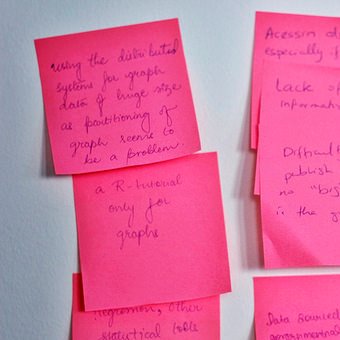 using the distributed
systems for graph
data of huge size
as partitioning of
graph seems to
be a problem.
a R-tutorial
only for
graphs
regression, other
statistical tools
Acessing
especially
Lack of
informati
Difficult
publish
no "big
is the
Data sourced